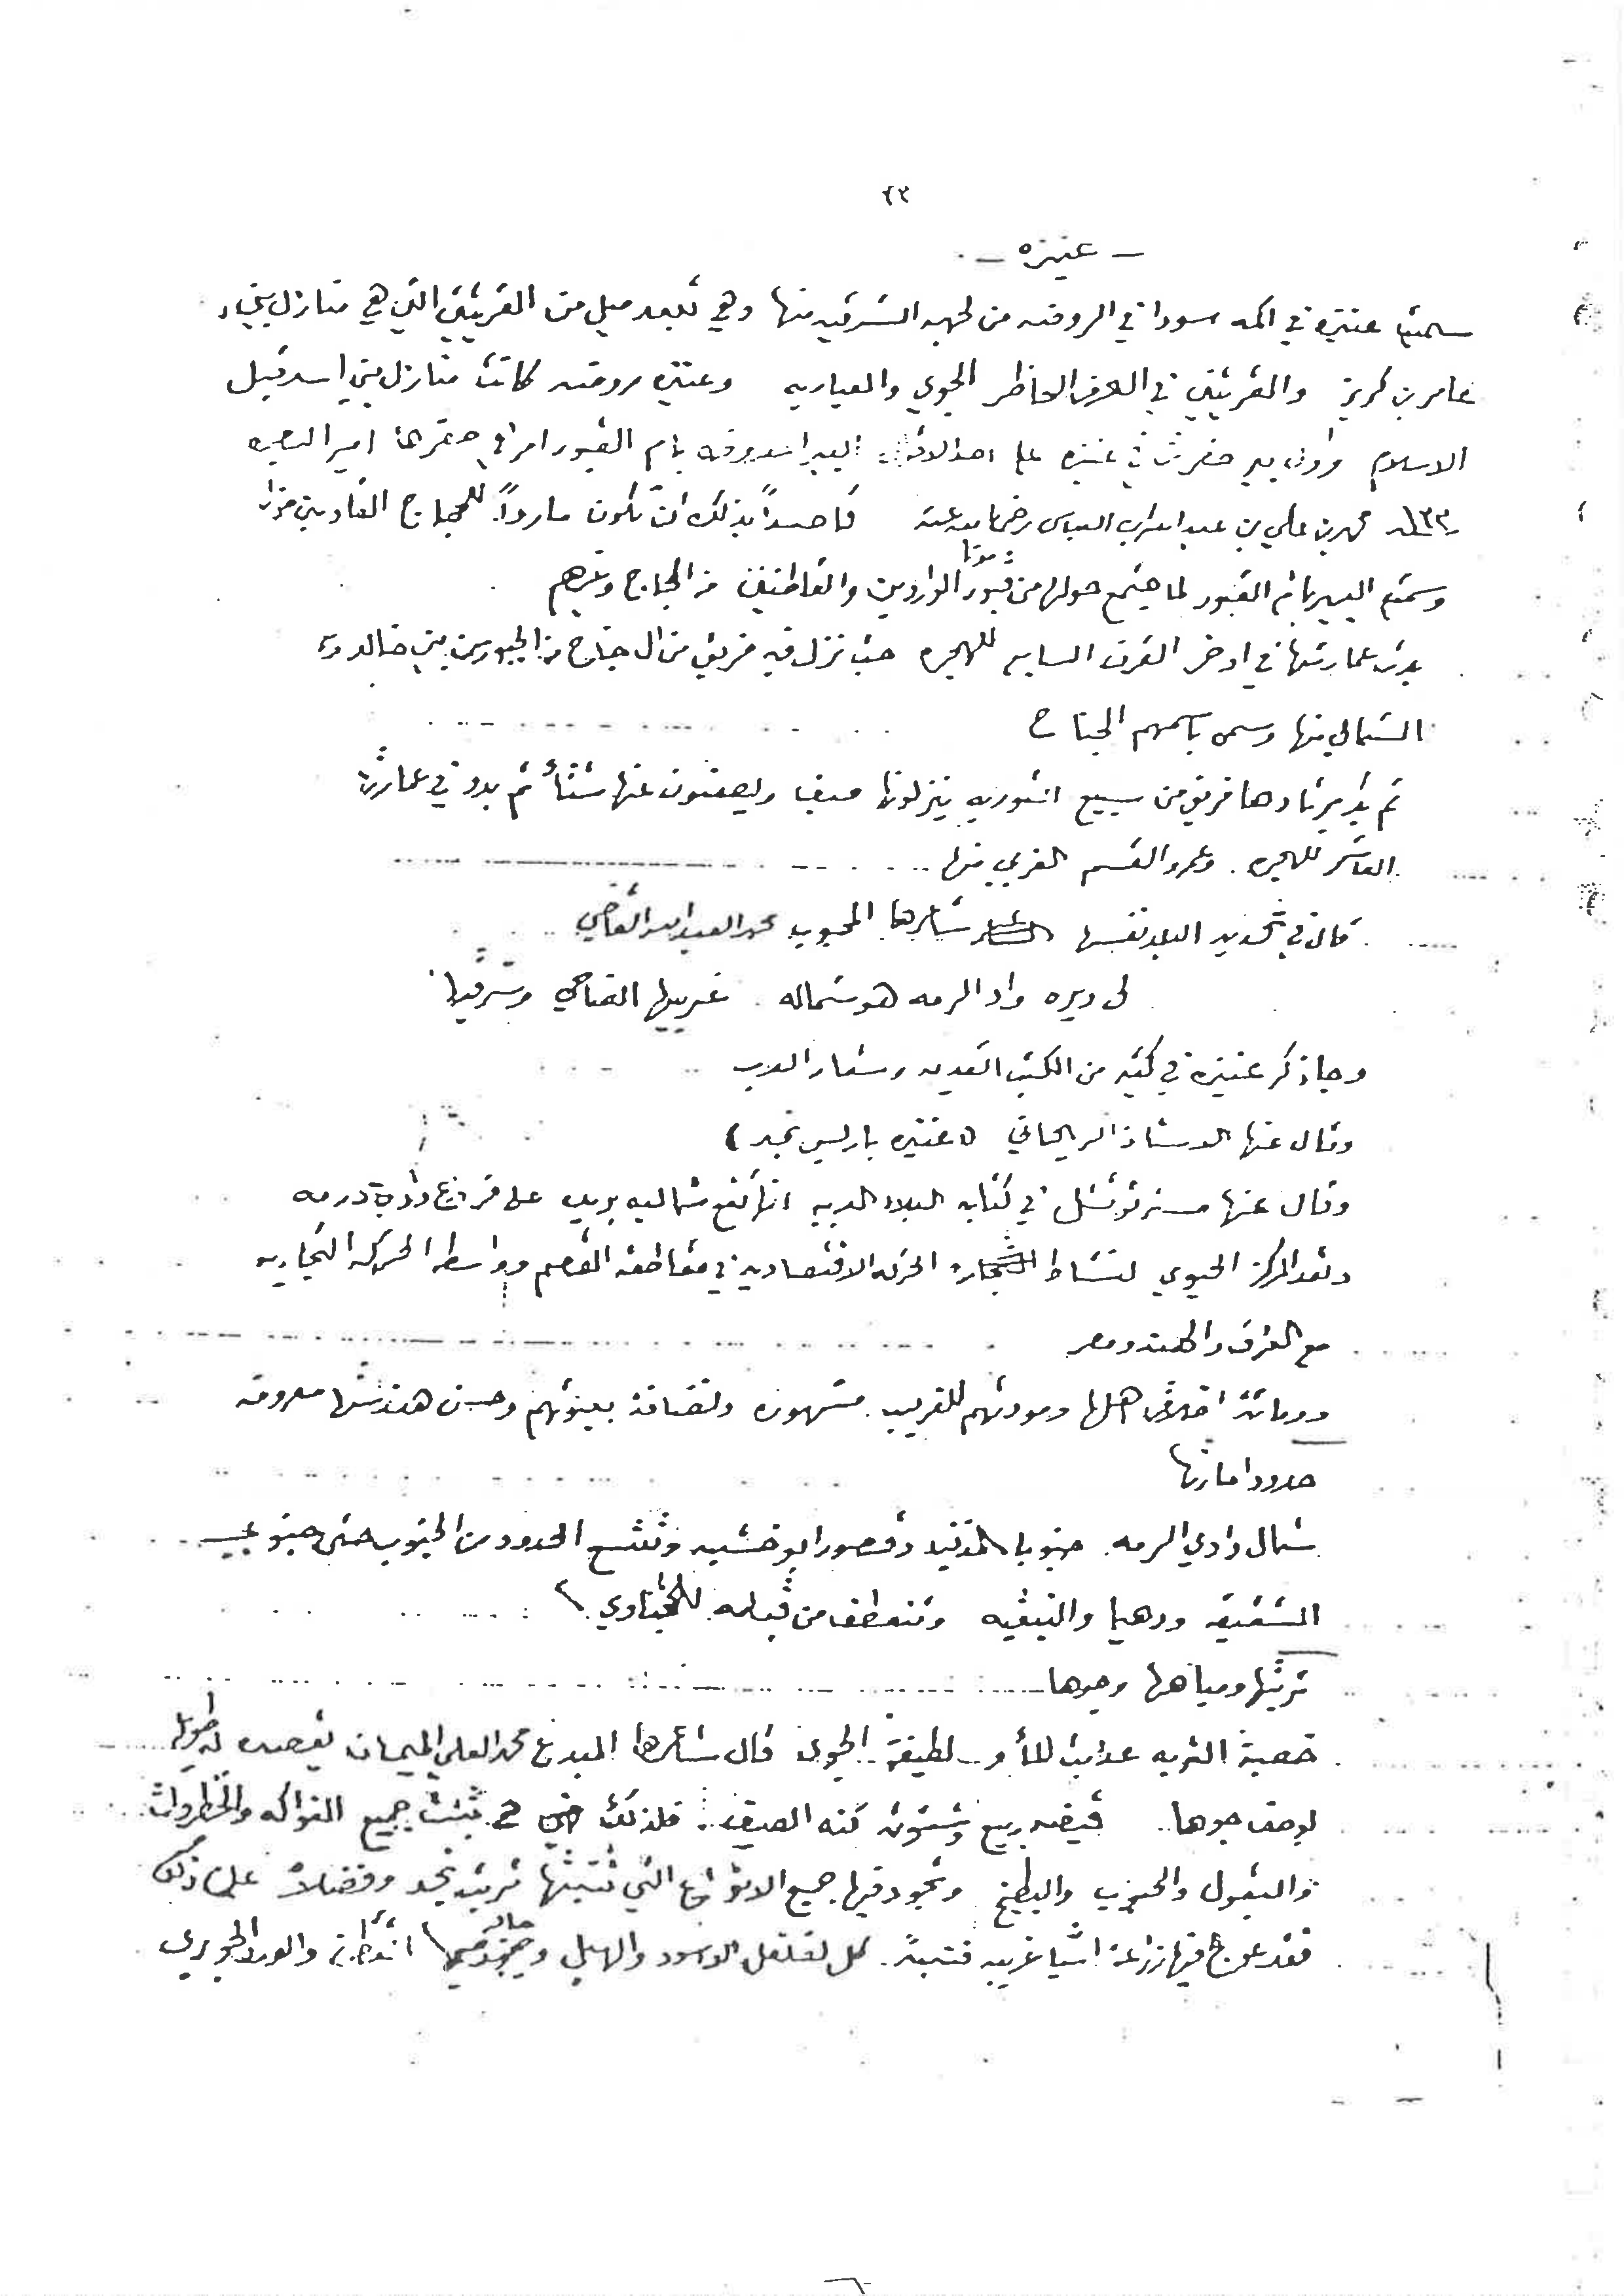 ٢٣
- عنيزه -
سميت عنيزه في اكمه سودا في الروضه من لجهه الشرقيه منها وهي تبعد ميل من القريتين التي هي منازل بني
عامر بن كريز والقريتين في العرف الحاظر الجوي والعياريه وعنيزه روضه كانت منازل بني اسد قبل
الاسلام واول بير حفرت في عنيزه على البير المعروفه بام القبور امر في حفرها امير البصره
١٣٣ محمد بن علي بن عبد الله بن العباس رضي الله عنه قاصداً بذلك ان تكون مارداً للحجاج القادمين من
وسميت البير بام القبور لما يجتمع حولها من قبور موتا الواردين والقاطنين من الحجاج وغيرهم
بدئ عمارتها في اوخر القرن السابع للهجره حيث نزل فيه فريق من ال جناح من الجبور من بني خالد
الشمالي منها وسمي باسمهم الجناح
ثم بدأ يرتادها فريق من سبيع الثوريه ينزلونها صيفا ويضعنون عنها شتأ ثم بدو في عمارتها
العاشر للهجره . وعمرو القسم الغربي منها
قال في تحديد البلد نفسها شاعرها المحبوب محمد العبد الله القاضي
لى ديره واد الرمه هو شماله . غربيها الضاحي وشرقيها
وجا ذكر عنيزه في كثير من الكتب القديمه وشعار العرب
وقال عنها الاستاذ الريحاني (عنيزه باريس نجد)
وقال عنها مستر تويتشل في كتابه البلاد العربيه انها تقع شماليه بريده على وادي الرمه
وتعد المركز الحيوي لنشاط الحركه الاقتصاديه في مقاطعة القصيم وواسطه الحركه التجاريه
مع العراق والهند ومصر
ودماثة اخلاق اهلها ومودتهم للغريب مشهوره ونضافة بيوتهم وحسن هندستها معروفه
حدود امارتها
شمال وادي الرمه . جنوبا المذنب وقصور ابو خشبه وتتسع الحدود من الجنوب حتى جنوبي
الشقيقه ودهيما والنبقيه وتنعطف من قبله للحجناوي .
تربتها ومياهها وجوها
خصبة التربه عذبت المأ و لطيفة الجوى قال شاعرها المبدع محمد العلي السليمان بقصيده له طويله
لوصف جوها . قيضه ربيع وشتوته كنه الصيف . فلذلك تنبت جميع الفواكه والخظروات
والبقول والحبوب والبطيخ وتجود فيها جميع الانواع التي تنبتها تربة نجد وفضلاً على ذلك
فقد عولج فيها زراعة اشيا غريبه فنبتت . كل لفلفل الاسود والهيل والورد الجوري